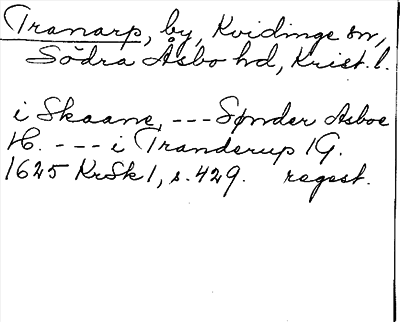 Tranarp, by, Kvidinge sn,
Södra Åsbo hd, Krist. l.
i Skaane, --- Sønder Asboe
H. --- i Tranderup 1 G.
1625 KrSk 1, s. 429. regest.